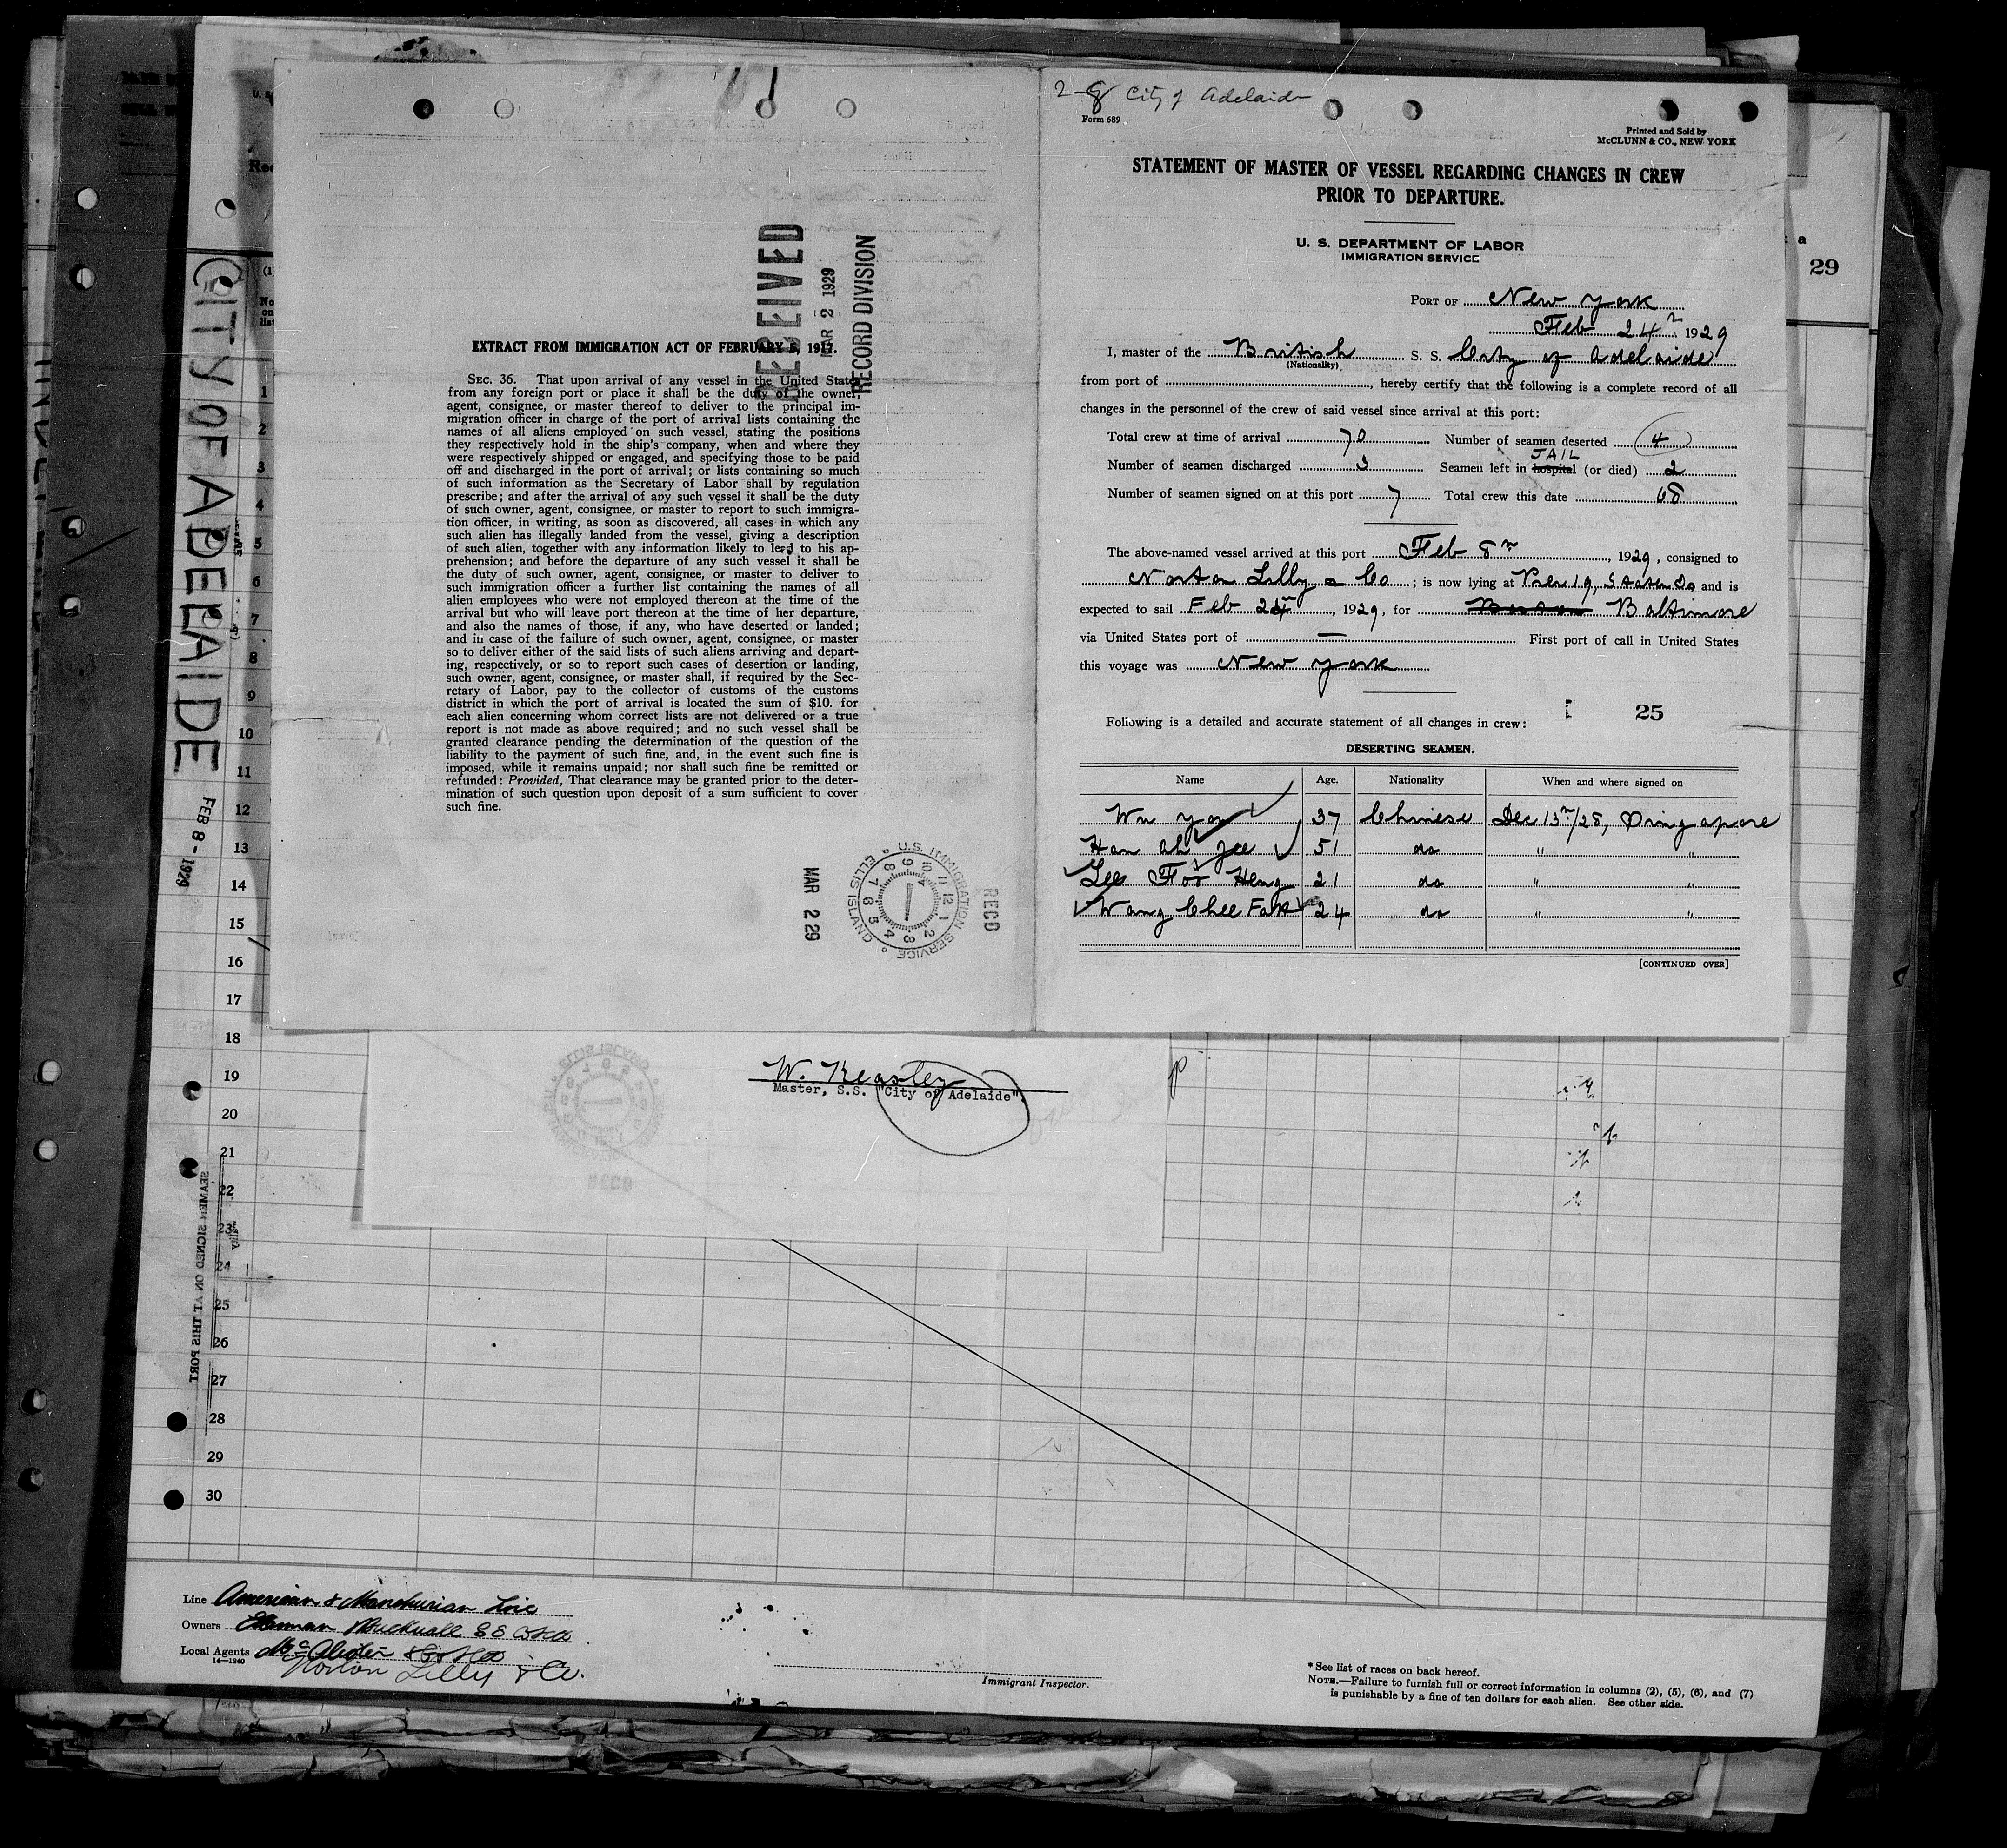 CITY OF ADELAIDE
FEB 8 - 1929
SEAMEN SIGNED ON AT THIS PORT
RECEIVED
MAR 2 1929
RECORD DIVISION
EXTRACT FROM IMMIGRATION ACT OF FEBRUARY 5, 1917.
SEC. 36. That upon arrival of any vessel in the United States
from any foreign port or place it shall be the duty of the owner,
agent, consignee, or master thereof to deliver to the principal im-
migration officer in charge of the port of arrival lists containing the
names of all aliens employed on such vessel, stating the positions
they respectively hold in the ship's company, when and where they
were respectively shipped or engaged, and specifying those to be paid
off and discharged in the port of arrival; or lists containing so much
of such information as the Secretary of Labor shall by regulation
prescribe; and after the arrival of any such vessel it shall be the duty
of such owner, agent, consignee, or master to report to such immigra-
tion officer, in writing, as soon as discovered, all cases in which any
such alien has illegally landed from the vessel, giving a description
of such alien, together with any information likely to lead to his ap-
prehension; and before the departure of any such vessel it shall be
the duty of such owner, agent, consignee, or master to deliver to
such immigration officer a further list containing the names of all
alien employees who were not employed thereon at the time of the
arrival but who will leave port thereon at the time of her departure,
and also the names of those, if any, who have deserted or landed;
and in case of the failure of such owner, agent, consignee, or master
so to deliver either of the said lists of such aliens arriving and depart-
ing, respectively, or so to report such cases of desertion or landing,
such owner, agent, consignee, or master shall, if required by the Sec-
retary of Labor, pay to the collector of customs of the customs
district in which the port of arrival is located the sum of $10. for
each alien concerning whom correct lists are not delivered or a true
report is not made as above required; and no such vessel shall be
granted clearance pending the determination of the question of the
liability to the payment of such fine, and, in the event such fine is
imposed, while it remains unpaid; nor shall such fine be remitted or
refunded: Provided, That clearance may be granted prior to the deter-
mination of such question upon deposit of a sum sufficient to cover
such fine.
MAR 2 29
U.S. IMMIGRATION SERVICE ELLIS ISLAND
RECD
2-8 City of Adelaide
Form 689
Printed and Sold by
McCLUNN & CO., NEW YORK
STATEMENT OF MASTER OF VESSEL REGARDING CHANGES IN CREW
PRIOR TO DEPARTURE.
U. S. DEPARTMENT OF LABOR
IMMIGRATION SERVICE
PORT OF New York
Feb 24 1929
I, master of the British S. S. City of Adelaide
(Nationality)
from port of , hereby certify that the following is a complete record of all
changes in the personnel of the crew of said vessel since arrival at this port:
Total crew at time of arrival 70 Number of seamen deserted 4
JAIL
Number of seamen discharged 3 Seamen left in hospital (or died) 2
Number of seamen signed on at this port 7 Total crew this date 68
The above-named vessel arrived at this port Feb 8 , 1929, consigned to
Norton Lilly & Co ; is now lying at Pier 19, Staten Is and is
expected to sail Feb , 1929, for Boston Baltimore
via United States port of — First port of call in United States
this voyage was New York
25
Following is a detailed and accurate statement of all changes in crew:
DESERTING SEAMEN.
Name Age. Nationality When and where signed on
Wu Yon 37 Chinese Dec 13/28, Singapore
Han Ah Jee 51 do " "
Lee Foo Heng 21 do " "
Wang Chee Fah 24 do " "
[CONTINUED OVER]
29
1
2
3
4
5
6
7
8
9
10
11
12
13
14
15
16
17
18
19
20
21
22
23
24
25
26
27
28
29
30
W. Keasley
Master, S.S. "City of Adelaide".
Line American & Manchurian Line
Owners Ellerman Bucknall SS Co Ltd
Local Agents
14—1240
Norton Lilly & Co.
Immigrant Inspector.
* See list of races on back hereof.
NOTE.—Failure to furnish full or correct information in columns (2), (5), (6), and (7)
is punishable by a fine of ten dollars for each alien. See other side.